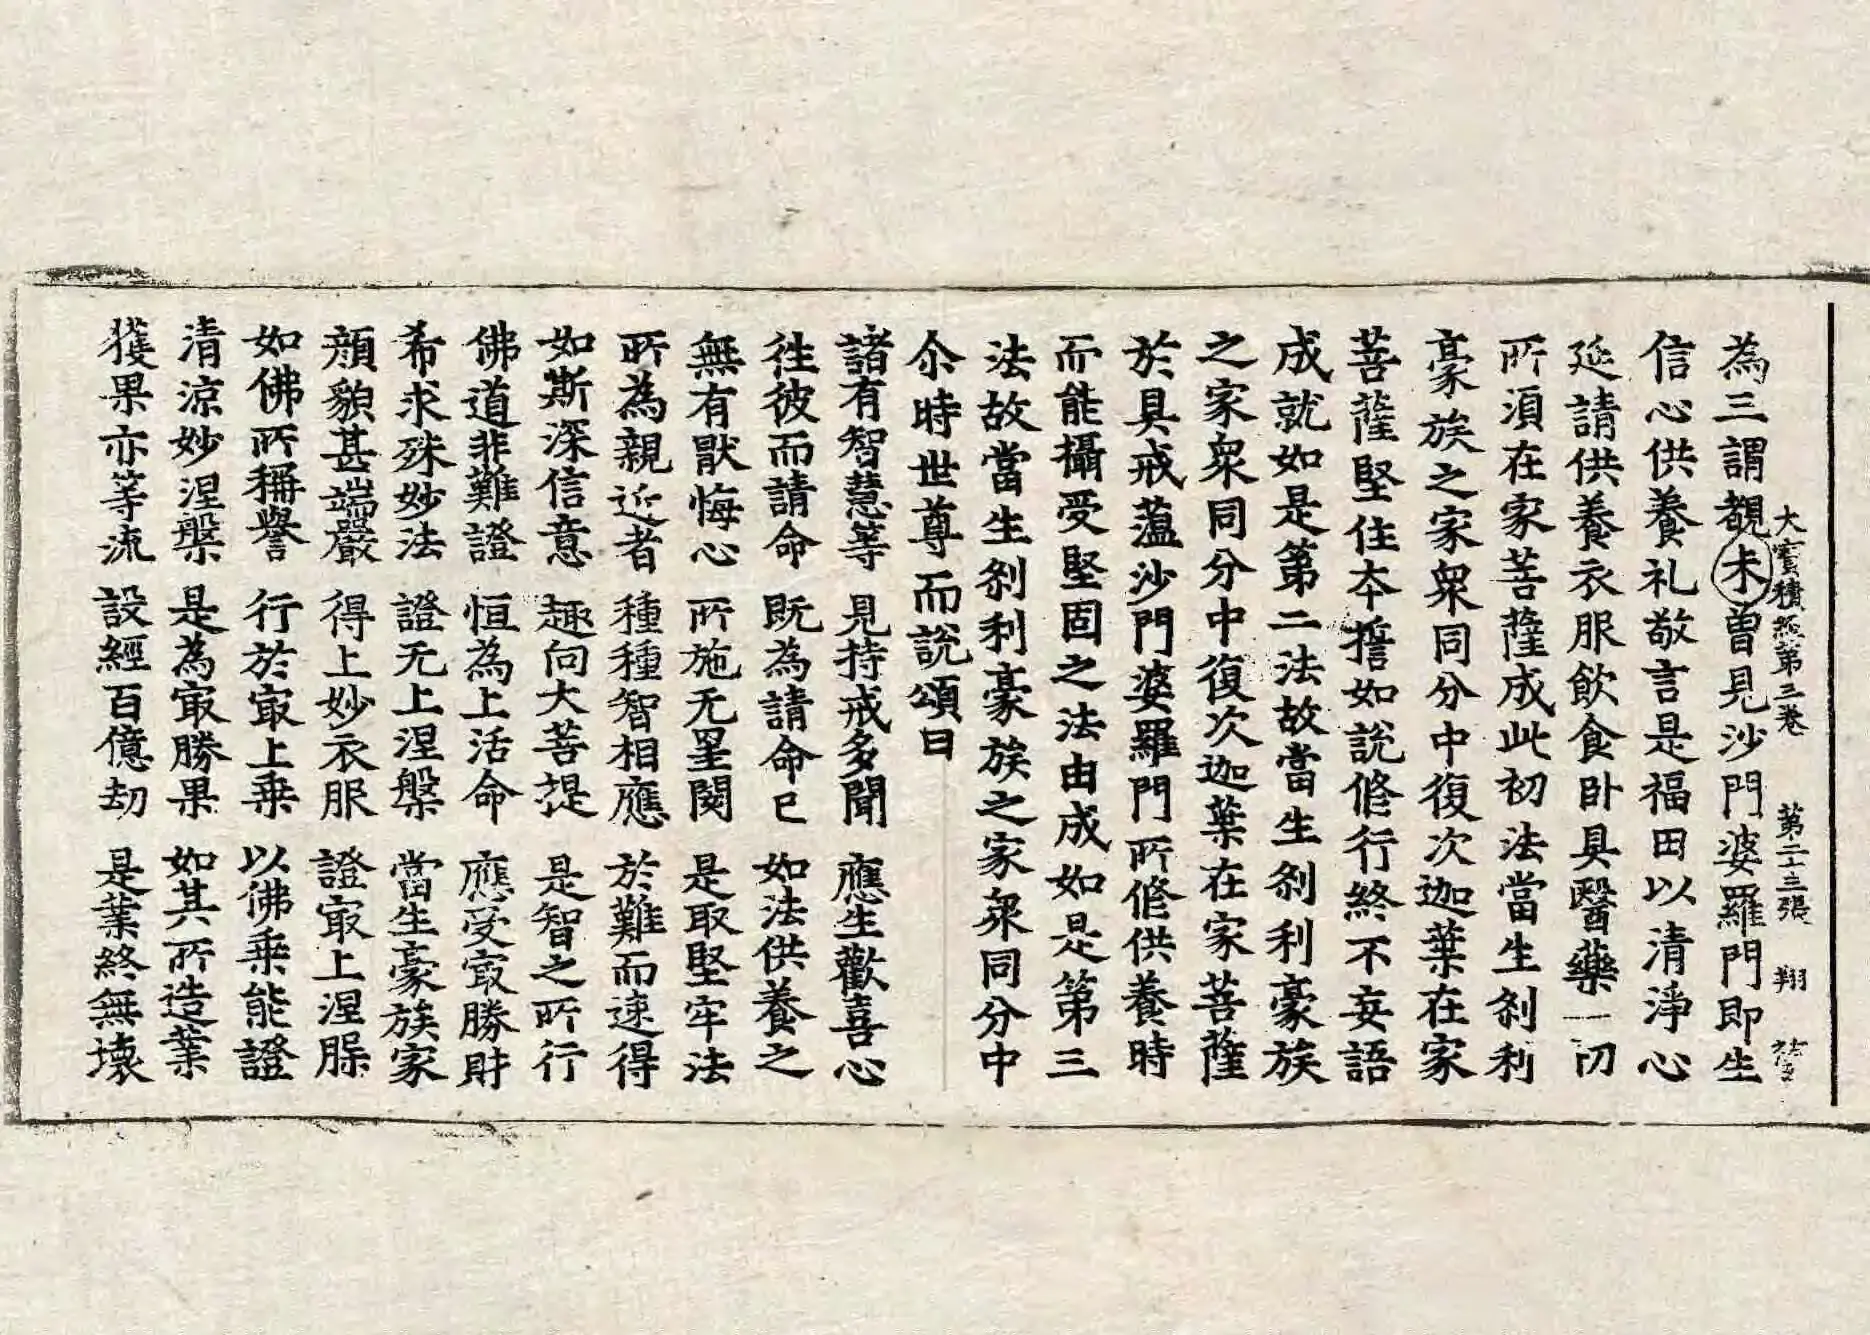 大寶積經第三卷　第二十三張　翔
為三謂覩未曾見沙門婆羅門即生
信心供養礼敬言是福田以清淨心
延請供養衣服飲食卧具醫藥一切
所湏在家菩薩成此初法當生刹利
豪族之家衆同分中復次迦葉在家
菩薩堅住夲誓如說修行終不妄語
成就如是第二法故當生刹利豪族
之家衆同分中復次迦葉在家菩薩
於具戒蕰沙門婆羅門所修供養時
而能攝受堅固之法由成如是第三
法故當生刹利豪族之家衆同分中
尒時世尊而說頌曰
諸有智慧等　見持戒多聞　應生歡喜心
往彼而請命　既為請命已　如法供養之
無有猒悔心　所施无罣閡　是取堅牢法
所為親近者　種種智相應　於難而速得
如斯深信意　趣向大菩提　是智之所行
佛道非難證　恒為上活命　應受㝡勝財
希求殊妙法　證无上涅槃　當生豪族家
顔貌甚端嚴　得上妙衣服　證㝡上涅槃
如佛所稱譽　行於㝡上乗　以佛乗能證
清凉妙涅槃　是為㝡勝果　如其所造業
獲果亦等流　設經百億劫　是業終無壞